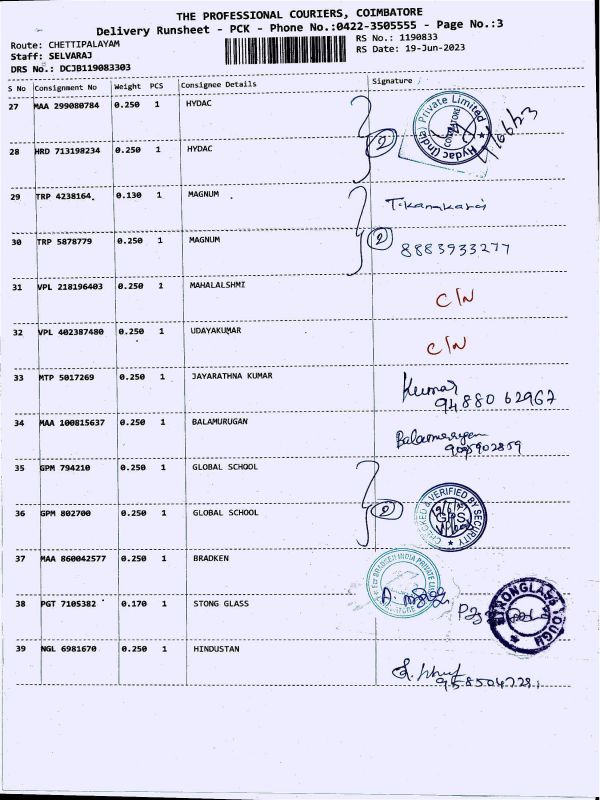 THE PROFESSIONAL COURIERS, COIMBATORE
Delivery Runsheet - PCK - Phone No.:0422-3505555 - Page No.:3
Route: CHETTIPALAYAM
RS No.: 1190833
Staff: SELVARAJ
RS Date: 19-Jun-2023
DRS No.: DCJB119083303
S No Consignment No Weight PCS Consignee Details Signature
27 MAA 299080784 0.250 1 HYDAC
Hydac (India) Private Limited
COIMBATORE
28 HRD 713198234 0.250 1 HYDAC
2
29 TRP 4238164 0.130 1 MAGNUM
T. Kanakaraj
30 TRP 5878779 0.250 1 MAGNUM
2
8883933277
31 VPL 218196403 0.250 1 MAHALALSHMI
C/N
32 VPL 402387480 0.250 1 UDAYAKUMAR
C/N
33 MTP 5017269 0.250 1 JAYARATHNA KUMAR
Kumar
94880 62967
34 MAA 100815637 0.250 1 BALAMURUGAN
Balamurugan
9095902859
35 GPM 794210 0.250 1 GLOBAL SCHOOL
36 GPM 802700 0.250 1 GLOBAL SCHOOL
2
CHECKED & VERIFIED BY SECURITY
GPS
37 MAA 860042577 0.250 1 BRADKEN
For BRADKEN INDIA PRIVATE
38 PGT 7105382 0.170 1 STONG GLASS
STRONGLASS TOUGH
39 NGL 6981670 0.250 1 HINDUSTAN